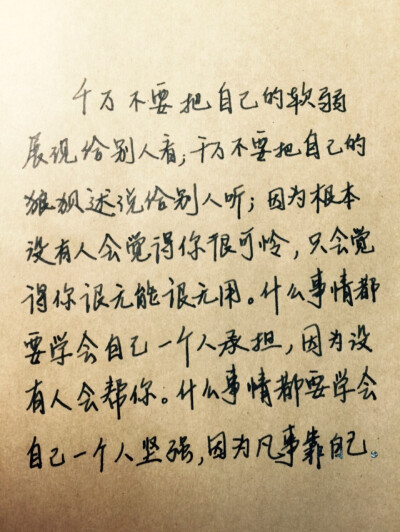 千万不要把自己的软弱
展现给别人看;千万不要把自己的
狼狈述说给别人听;因为根本
没有人会觉得你很可怜,只会觉
得你很无能很无用。什么事情都
要学会自己一个人承担,因为没
有人会帮你。什么事情都要学会
自己一个人坚强,因为凡事靠自己。